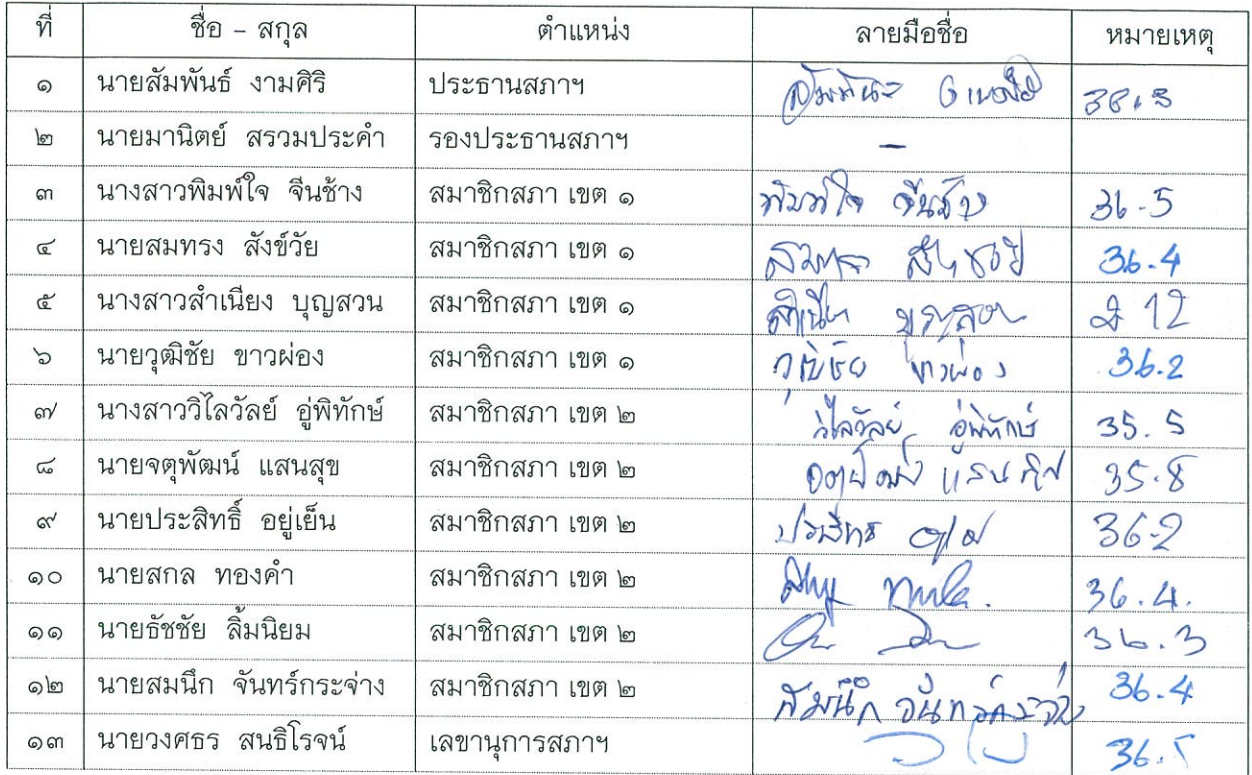 ที่ ชื่อ – สกุล ตำแหน่ง ลายมือชื่อ หมายเหตุ
๑ นายสัมพันธ์ งามศิริ ประธานสภาฯ 36.3
๒ นายมานิตย์ สรวมประคำ รองประธานสภาฯ –
๓ นางสาวพิมพ์ใจ จีนช้าง สมาชิกสภา เขต ๑ พิมพ์ใจ จีนช้าง 36.5
๔ นายสมทรง สังข์วัย สมาชิกสภา เขต ๑ 36.4
๕ นางสาวสำเนียง บุญสวน สมาชิกสภา เขต ๑
๖ นายวุฒิชัย ขาวผ่อง สมาชิกสภา เขต ๑ วุฒิชัย ขาวผ่อง 36.2
๗ นางสาววิไลวัลย์ อู่พิทักษ์ สมาชิกสภา เขต ๒ วิไลวัลย์ อู่พิทักษ์ 35.5
๘ นายจตุพัฒน์ แสนสุข สมาชิกสภา เขต ๒ 35.8
๙ นายประสิทธิ์ อยู่เย็น สมาชิกสภา เขต ๒ 36.2
๑๐ นายสกล ทองคำ สมาชิกสภา เขต ๒ 36.4.
๑๑ นายธัชชัย ลิ้มนิยม สมาชิกสภา เขต ๒ 36.3
๑๒ นายสมนึก จันทร์กระจ่าง สมาชิกสภา เขต ๒ สมนึก จันทร์กระจ่าง 36.4
๑๓ นายวงศธร สนธิโรจน์ เลขานุการสภาฯ 36.5